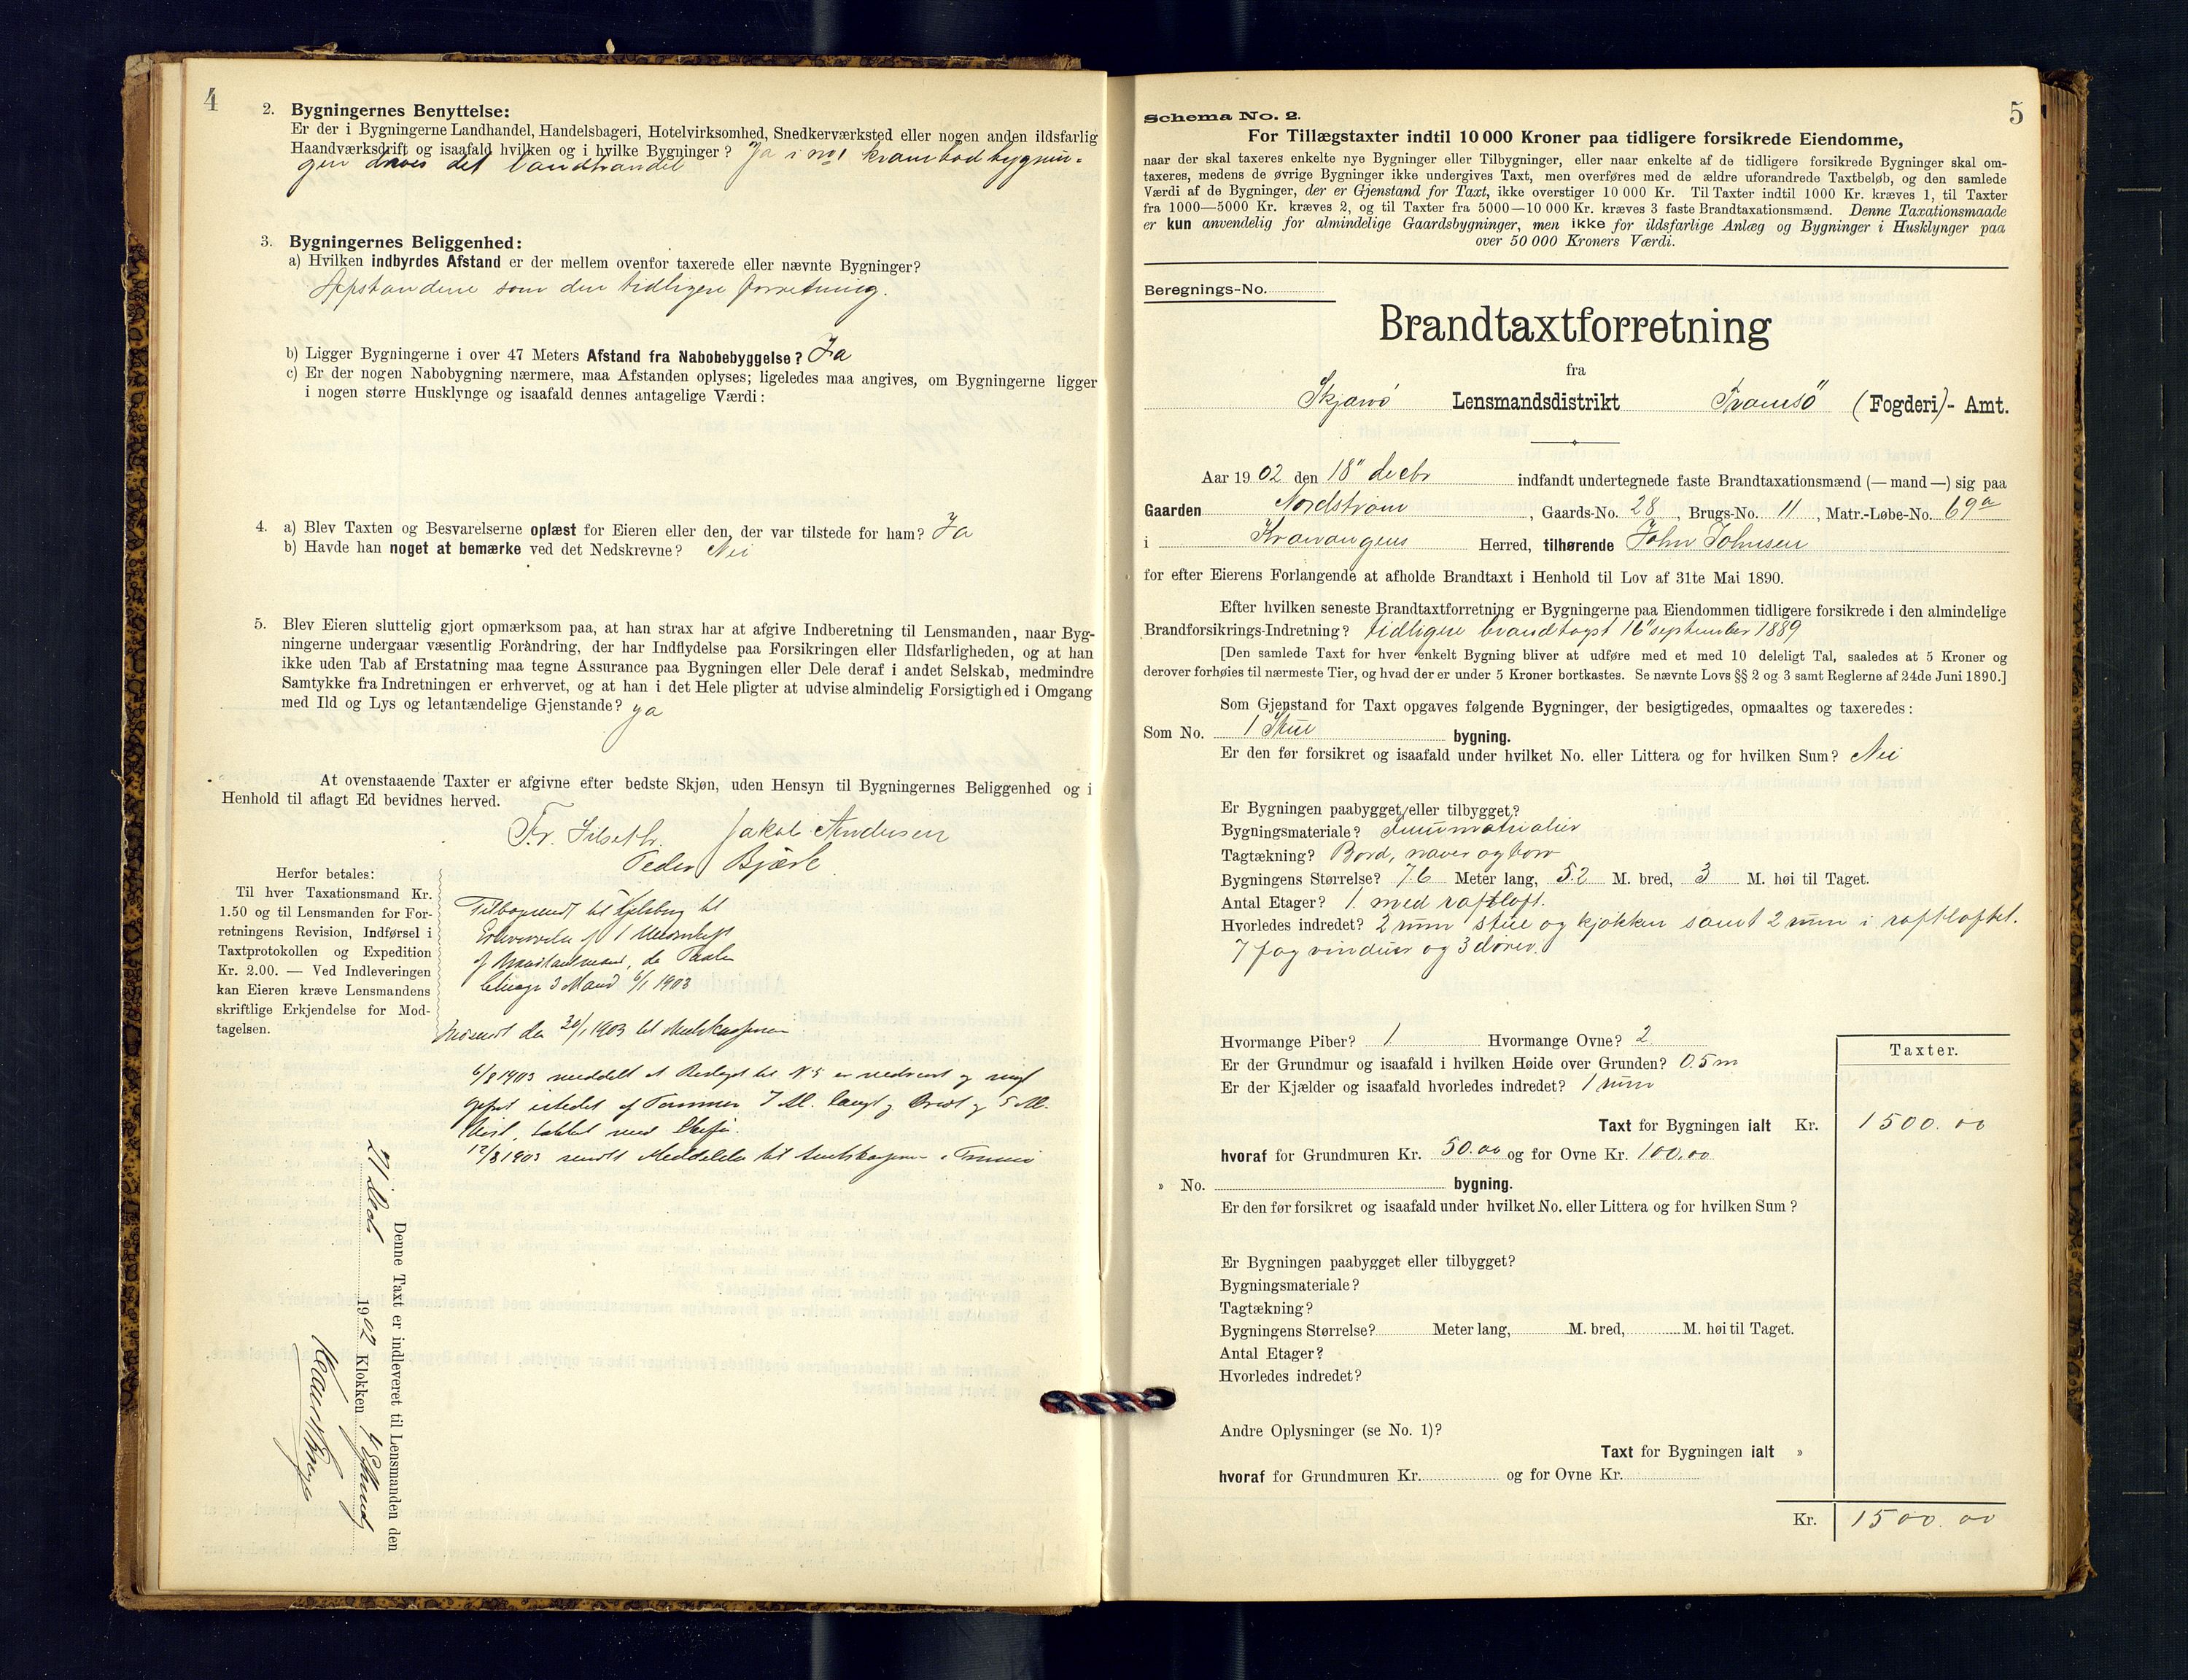 4
2. Bygningernes Benyttelse:
Er der i Bygningerne Landhandel, Handelsbageri, Hotelvirksomhed, Snedkerværksted eller nogen anden ildsfarlig
Haandværksdrift og isaafald hvilken og i hvilke Bygninger? Ja i no 1 krambodbygnin-
gen drives det landhandel
3. Bygningernes Beliggenhed:
a) Hvilken indbyrdes Afstand er der mellem ovenfor taxerede eller nævnte Bygninger?
Afstandene som den tidligere forretning.
b) Ligger Bygningerne i over 47 Meters Afstand fra Nabobebyggelse? Ja
c) Er der nogen Nabobygning nærmere, maa Afstanden oplyses; ligeledes maa angives, om Bygningerne ligger
i nogen større Husklynge og isaafald dennes antagelige Værdi:
4. a) Blev Taxten og Besvarelserne oplæst for Eieren eller den, der var tilstede for ham? Ja
b) Havde han noget at bemærke ved det Nedskrevne? Nei
5. Blev Eieren sluttelig gjort opmærksom paa, at han strax har at afgive Indberetning til Lensmanden, naar Byg-
ningerne undergaar væsentlig Forandring, der har Indflydelse paa Forsikringen eller Ildsfarligheden, og at han
ikke uden Tab af Erstatning maa tegne Assurance paa Bygningen eller Dele deraf i andet Selskab, medmindre
Samtykke fra Indretningen er erhvervet, og at han i det Hele pligter at udvise almindelig Forsigtighed i Omgang
med Ild og Lys og letantændelige Gjenstande? ja
At ovenstaaende Taxter er afgivne efter bedste Skjøn, uden Hensyn til Bygningernes Beliggenhed og i
Henhold til aflagt Ed bevidnes herved.
Jakob Andersen
Peder
Herfor betales:
Til hver Taxationsmand Kr.
1.50 og til Lensmanden for For-
retningens Revision, Indførsel i
Taxtprotokollen og Expedition
Kr. 2.00. — Ved Indleveringen
kan Eieren kræve Lensmandens
skriftlige Erkjendelse for Mod-
tagelsen.
Tilbagesendt til
af 1
3 Mand 6/1 1903
Indsendt den 20/1 1903 til Amtskassereren
6/8 1903 meddelt at No 5 er nedrevet og nyt
opført istedet af Tømmer 7 M. langt og bredt og 5 M.
høit,
12/8 1903 sendt Meddelelse til Amtskassereren i Tromsø
Denne Taxt er indleveret til Lensmanden den
21 Decbr 1902 Klokken 4 Efterm
5
Schema No. 2.
For Tillægstaxter indtil 10 000 Kroner paa tidligere forsikrede Eiendomme,
naar der skal taxeres enkelte nye Bygninger eller Tilbygninger, eller naar enkelte af de tidligere forsikrede Bygninger skal om-
taxeres, medens de øvrige Bygninger ikke undergives Taxt, men overføres med de ældre uforandrede Taxtbeløb, og den samlede
Værdi af de Bygninger, der er Gjenstand for Taxt, ikke overstiger 10 000 Kr. Til Taxter indtil 1000 Kr. kræves 1, til Taxter
fra 1000—5000 Kr. kræves 2, og til Taxter fra 5000—10 000 Kr. kræves 3 faste Brandtaxationsmænd. Denne Taxationsmaade
er kun anvendelig for almindelige Gaardsbygninger, men ikke for ildsfarlige Anlæg og Bygninger i Husklynger paa
over 50 000 Kroners Værdi.
Beregnings-No.
Brandtaxtforretning
fra
Skjærvø Lensmandsdistrikt Tromsø (Fogderi)- Amt.
Aar 1902 den 18" decbr indfandt undertegnede faste Brandtaxationsmænd (— mand —) sig paa
Gaarden Nordstrøm, Gaards-No. 28, Brugs-No. 11, Matr.-Løbe-No. 69a
i Kvænangens Herred, tilhørende John Johnsen
for efter Eierens Forlangende at afholde Brandtaxt i Henhold til Lov af 31te Mai 1890.
Efter hvilken seneste Brandtaxtforretning er Bygningerne paa Eiendommen tidligere forsikrede i den almindelige
Brandforsikrings-Indretning? tidligere brandtagst 16" september 1889
[Den samlede Taxt for hver enkelt Bygning bliver at udføre med et med 10 deleligt Tal, saaledes at 5 Kroner og
derover forhøies til nærmeste Tier, og hvad der er under 5 Kroner bortkastes. Se nævnte Lovs §§ 2 og 3 samt Reglerne af 24de Juni 1890.]
Som Gjenstand for Taxt opgaves følgende Bygninger, der besigtigedes, opmaaltes og taxeredes:
Som No. 1 Stue bygning.
Er den før forsikret og isaafald under hvilket No. eller Littera og for hvilken Sum? Nei
Er Bygningen paabygget eller tilbygget?
Bygningsmateriale?
Tagtækning? Bord, næver og torv
Bygningens Størrelse? 7.6 Meter lang, 5.2 M. bred, 3 M. høi til Taget.
Antal Etager? 1 med raftloft.
Hvorledes indredet? 2 rum stue og kjøkken samt 2 rum i raftloftet.
7 fag vinduer og 3 dører.
Hvormange Piber? 1 Hvormange Ovne? 2
Er der Grundmur og isaafald i hvilken Høide over Grunden? 0.5 m
Er der Kjælder og isaafald hvorledes indredet? 1 rum
Taxter.
Taxt for Bygningen ialt Kr. 1500.00
hvoraf for Grundmuren Kr. 50.00 og for Ovne Kr. 100.00
» No. bygning.
Er den før forsikret og isaafald under hvilket No. eller Littera og for hvilken Sum?
Er Bygningen paabygget eller tilbygget?
Bygningsmateriale?
Tagtækning?
Bygningens Størrelse? Meter lang, M. bred, M. høi til Taget.
Antal Etager?
Hvorledes indredet?
Andre Oplysninger (se No. 1)?
Taxt for Bygningen ialt »
hvoraf for Grundmuren Kr. og for Ovne Kr.
Kr. 1500.00